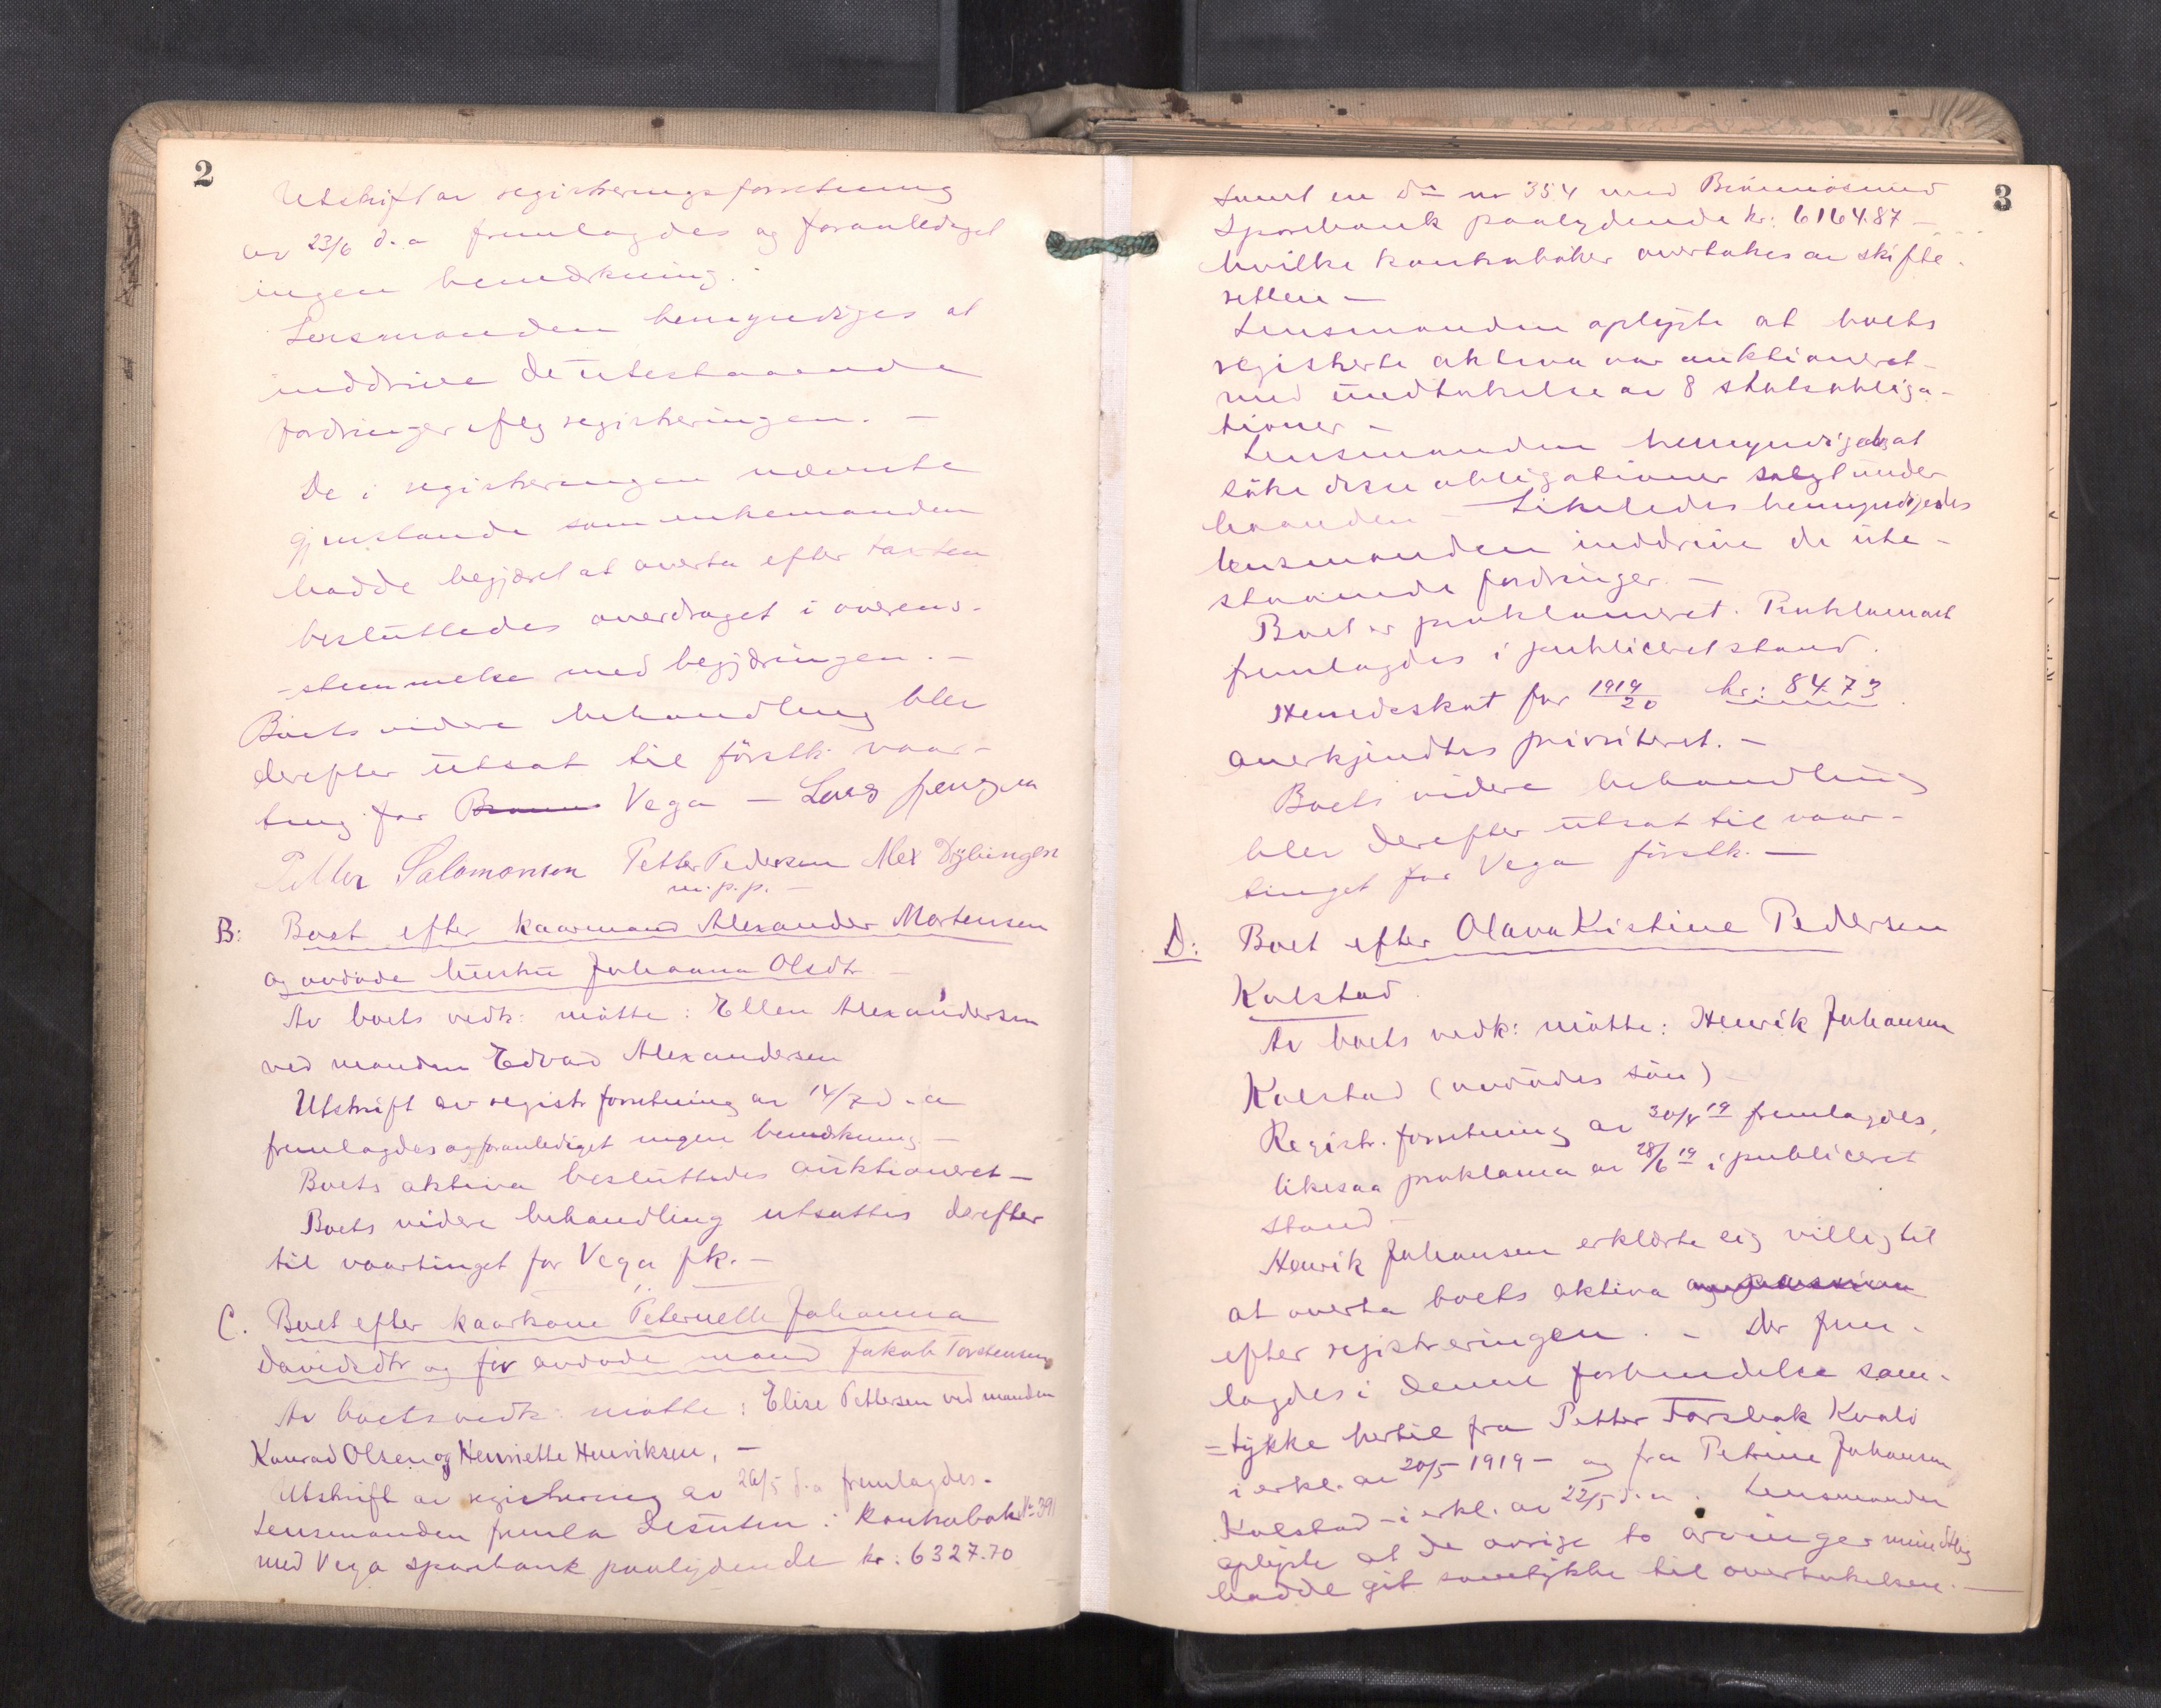 2
Utskrift av registreringsforretning
av 23/6 d.a fremlagdes og foranlediget
ingen bemerkning.
Lensmanden bemyndiges at
inddrive de utestaaende
fordringer iflg registreringen. —
De i registreringen nævnte
gjenstande som enkemanden
hadde begjæret at overta efter taxten
besluttedes overdraget i overens-
-stemmelse med begjæringen. —
Boets videre behandling blev
derefter utsat til förstk. vaar-
ting for Vega —
Petter Salomonsen Petter Pedersen Alex Dybingen
m.p.p. —
B: Boet efter kaarmand Alexander Mortensen
og avdöde hustru Johanna Olsdtr
Av boets vedk: mötte: Ellen Alexandersen
ved manden Edvard Alexandersen
Utskrift av registr forretning av 14/7 d.a
fremlagdes og foranlediget ingen bemerkning —
Boets aktiva besluttedes auktioneret —
Boets videre behandling utsattes derefter
til vaartinget for Vega fk. —
C. Boet efter kaarkone Peternelle Johanna
Davidsdtr og för avdöde mand Jakob Torstensen
Av boets vedk: mötte: Elise Pettersen ved manden
Konrad Olsen og Henriette Henriksen, —
Utskrift av registrering av 26/5 d.a fremlagdes.
Lensmanden fremla desuten: Kontrabok No 391
med Vega sparebank paalydende kr: 6327.70
3
samt en do nr 354 med Brönnösund
Sparebank paalydende kr: 6164.87 —
hvilke kontraböker overtakes av skifte-
retten —
Lensmanden oplyste at boets
registrerte aktiva var auktioneret —
med undtakelse av 8 statsobliga-
tioner —
Lensmanden bemyndigedes at
söke disse obligationer solgt under
haanden — Likeledes bemyndigedes
lensmanden inddrive de ute-
staaende fordringer. —
Boet er proklameret. Proklamaet
fremlagdes i publiceret stand.
Herredskat for 1919/20 kr: 84.73
anerkjendtes prioriteret. —
Boets videre behandling
blev derefter utsat til vaar-
tinget for Vega förstk. —
D: Boet efter Olava Kristine Pedersen
Kolstad
Av boets vedk: mötte: Henrik Johansen
Kolstad (avdödes sön) —
Registr. forretning av 30/4 19 fremlagdes,
likesaa proklama av 28/6 19 i publiceret
stand —
Henrik Johansen erklærte sig villig til
at overta boets aktiva
efter registreringen. — Der frem-
lagdes i denne forbindelse sam-
=tykke hertil fra Petter Forsbak Kvalö
i erkl. av 20/5 1919 — og fra Petrine Johansen
Kolstad — i erkl. av 22/5 d.a. Lensmanden
oplyste at de övrige to arvinger mundtlig
hadde git samtykke til overtakelsen. —